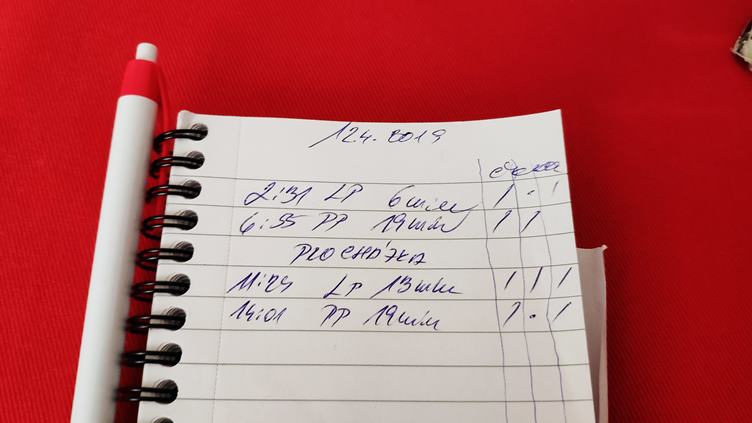 12.4. 2019
2:31 LP 6min / • /
6:55 PP 19min / /
PROCHÁZKA
11:29 LP 13min / / /
14:01 PP 19min / • /